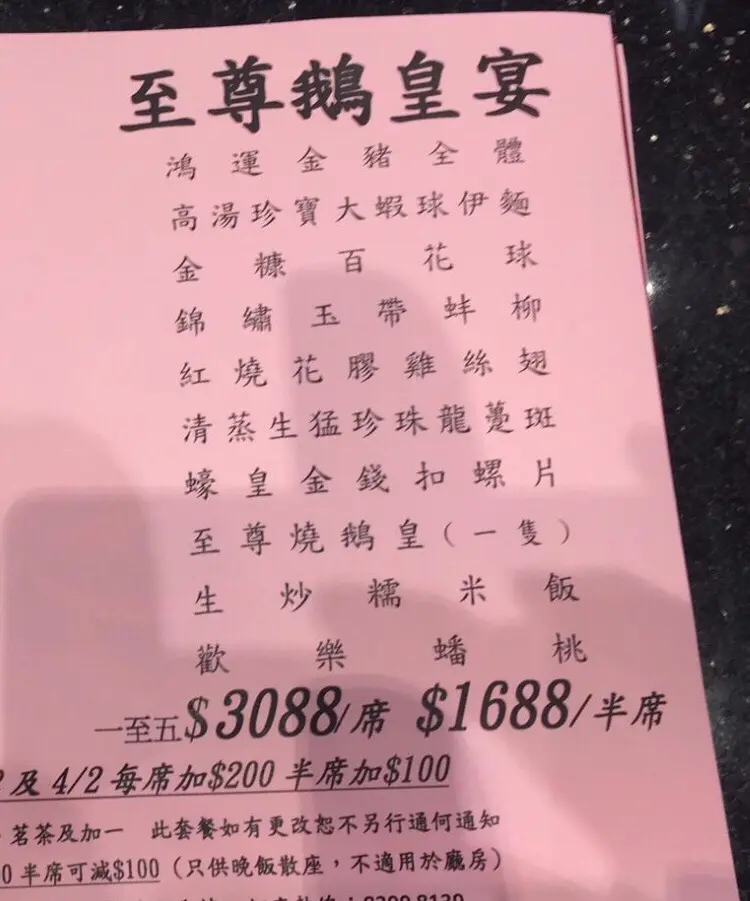 至尊鵝皇宴
鴻運金豬全體
高湯珍寶大蝦球伊麵
金糠百花球
錦繡玉帶蚌柳
紅燒花膠雞絲翅
清蒸生猛珍珠龍躉斑
蠔皇金錢扣螺片
至尊燒鵝皇(一隻)
生炒糯米飯
歡樂蟠桃
一至五$3088/席 $1688/半席
及 4/2 每席加$200 半席加$100
茗茶及加一 此套餐如有更改恕不另行通何通知
0 半席可減$100 (只供晚飯散座，不適用於廳房)